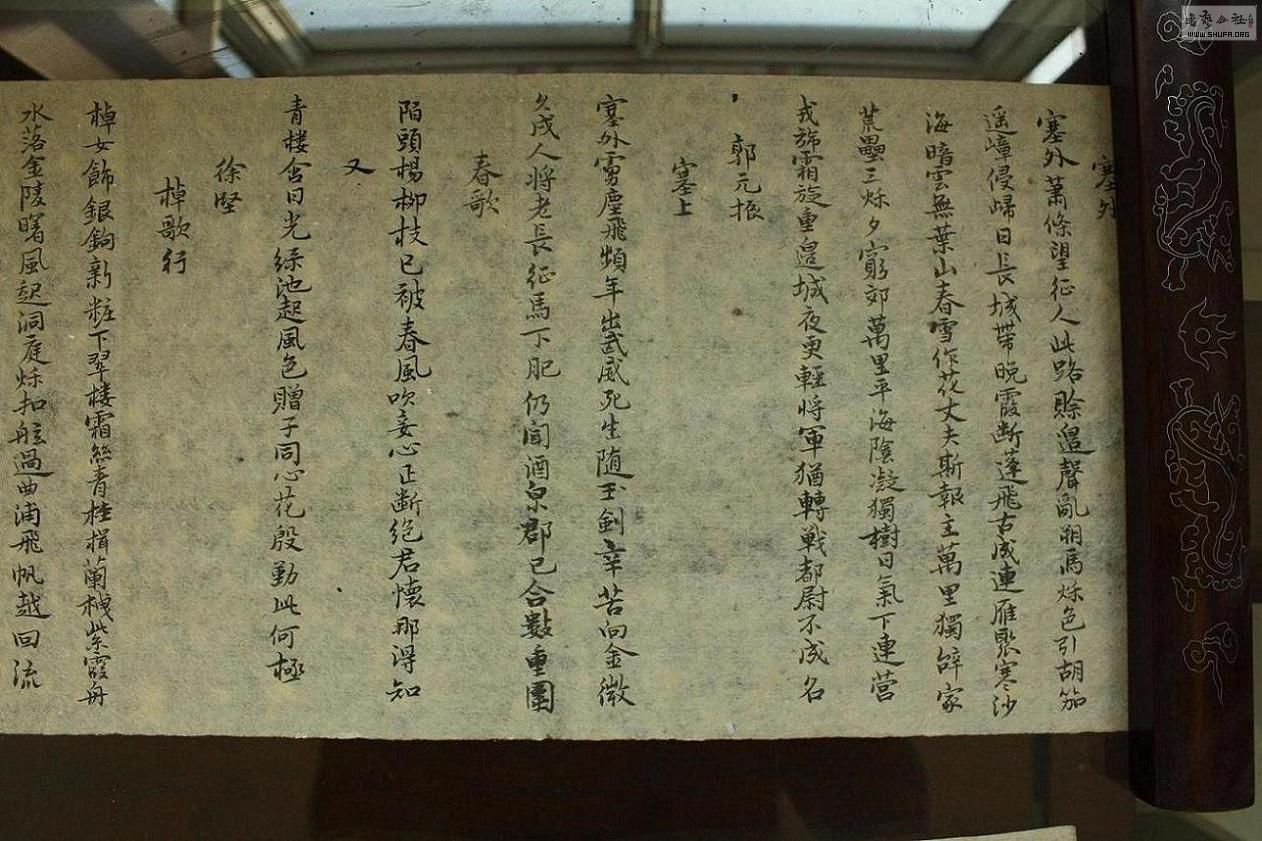 塞外
塞外蕭條望征人此路賒邊聲亂朔馬烁色引胡笳
遥嶂侵歸日長城帶晚霞断蓬飛古戍連雁聚寒沙
海暗雲無葉山春雪作花丈夫斯報主萬里獨辞家
荒壘三烁夕窮郊萬里平海陰凝獨樹日氣下連营
戎旆霜旋重邊城夜更輕將軍猶轉戦都尉不成名
郭元振
塞上
塞外虜塵飛頻年出武威死生随玉劍辛苦向金微
久戍人将老長征馬不肥仍聞酒泉郡已合數重圍
春歌
陌頭楊柳枝已被春風吹妾心正断絶君懷那得知
又
青楼含日光緑池起風色贈子同心花殷勤此何極
徐堅
棹歌行
棹女飾銀鉤新粧下翠楼霜絲青桂楫蘭栧紫霞舟
水落金陵曙風起洞庭烁扣舷過曲浦飛帆越回流
書藝公社
WWW.SHUFA.ORG